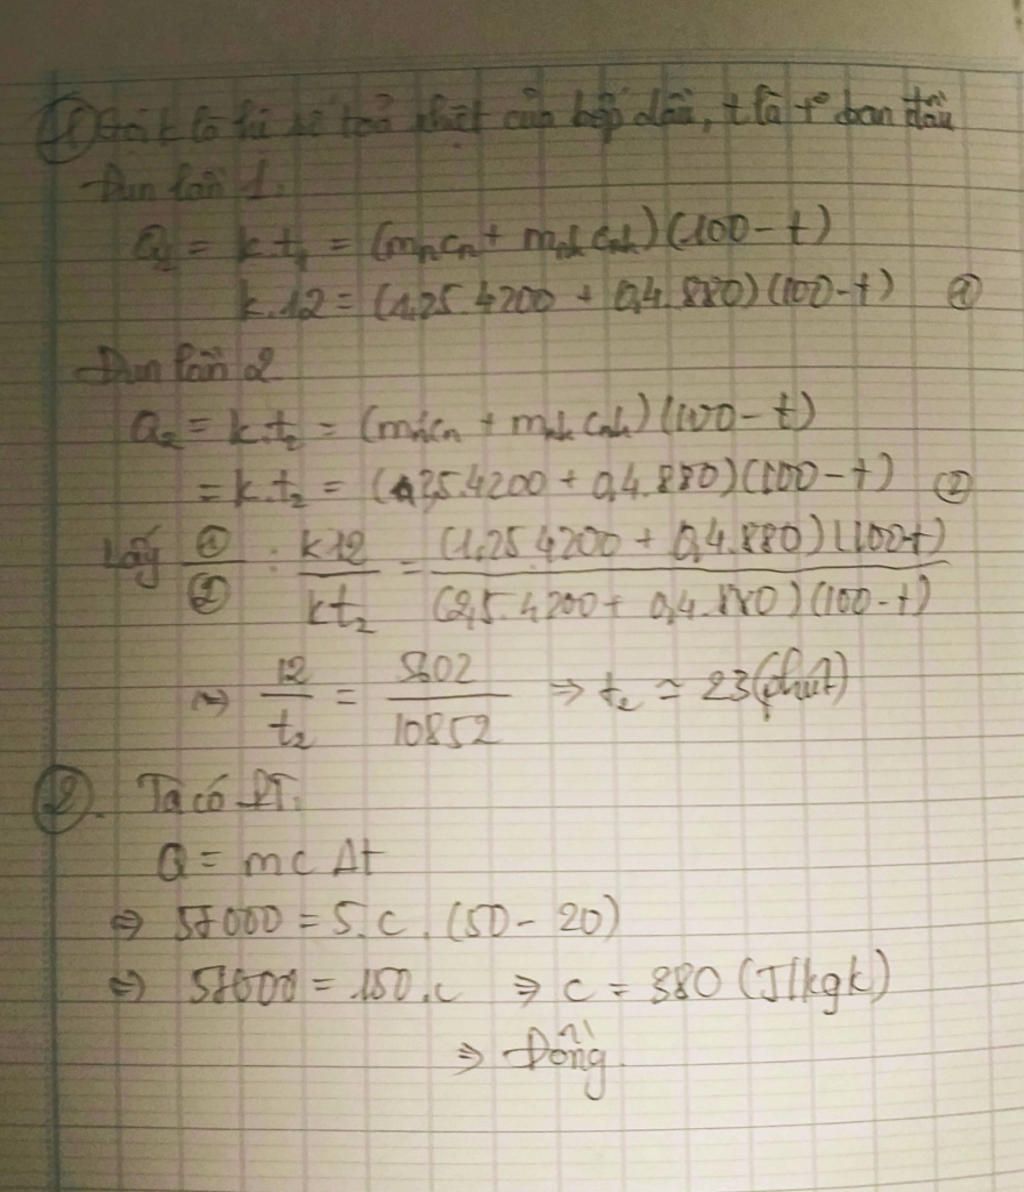 ① Gọi k là hệ số toả nhiệt của bếp dầu, t là t° ban đầu
Đun lần 1.
Q₁ = k.t₁ = (mₙcₙ + mₙₕcₙₕ)(100 - t)
k.12 = (1,25.4200 + 0,4.880)(100-t) ①
Đun lần 2
Q₂ = k.t₂ = (m'ₙcₙ + mₙₕcₙₕ)(100 - t)
= k.t₂ = (2,5.4200 + 0,4.880)(100 - t) ②
Lấy ①/② : k12/kt₂ = (1,25.4200 + 0,4.880)(100-t)/(2,5.4200 + 0,4.880)(100-t)
=> 12/t₂ = 5602/10852 => t₂ ≈ 23 (phút)
②. Ta có PT:
Q = mcΔt
<=> 57000 = 5.c.(50 - 20)
<=> 57000 = 150.c => c = 380 (J/kgk)
=> Đồng.